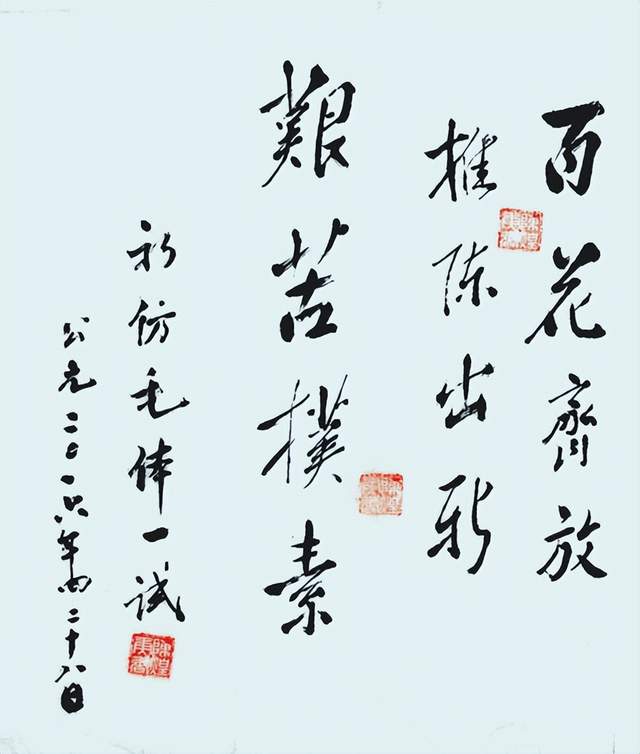 百花齊放
推陈出新
艱苦樸素
仿毛体一试
公元二〇一六年四二十八日